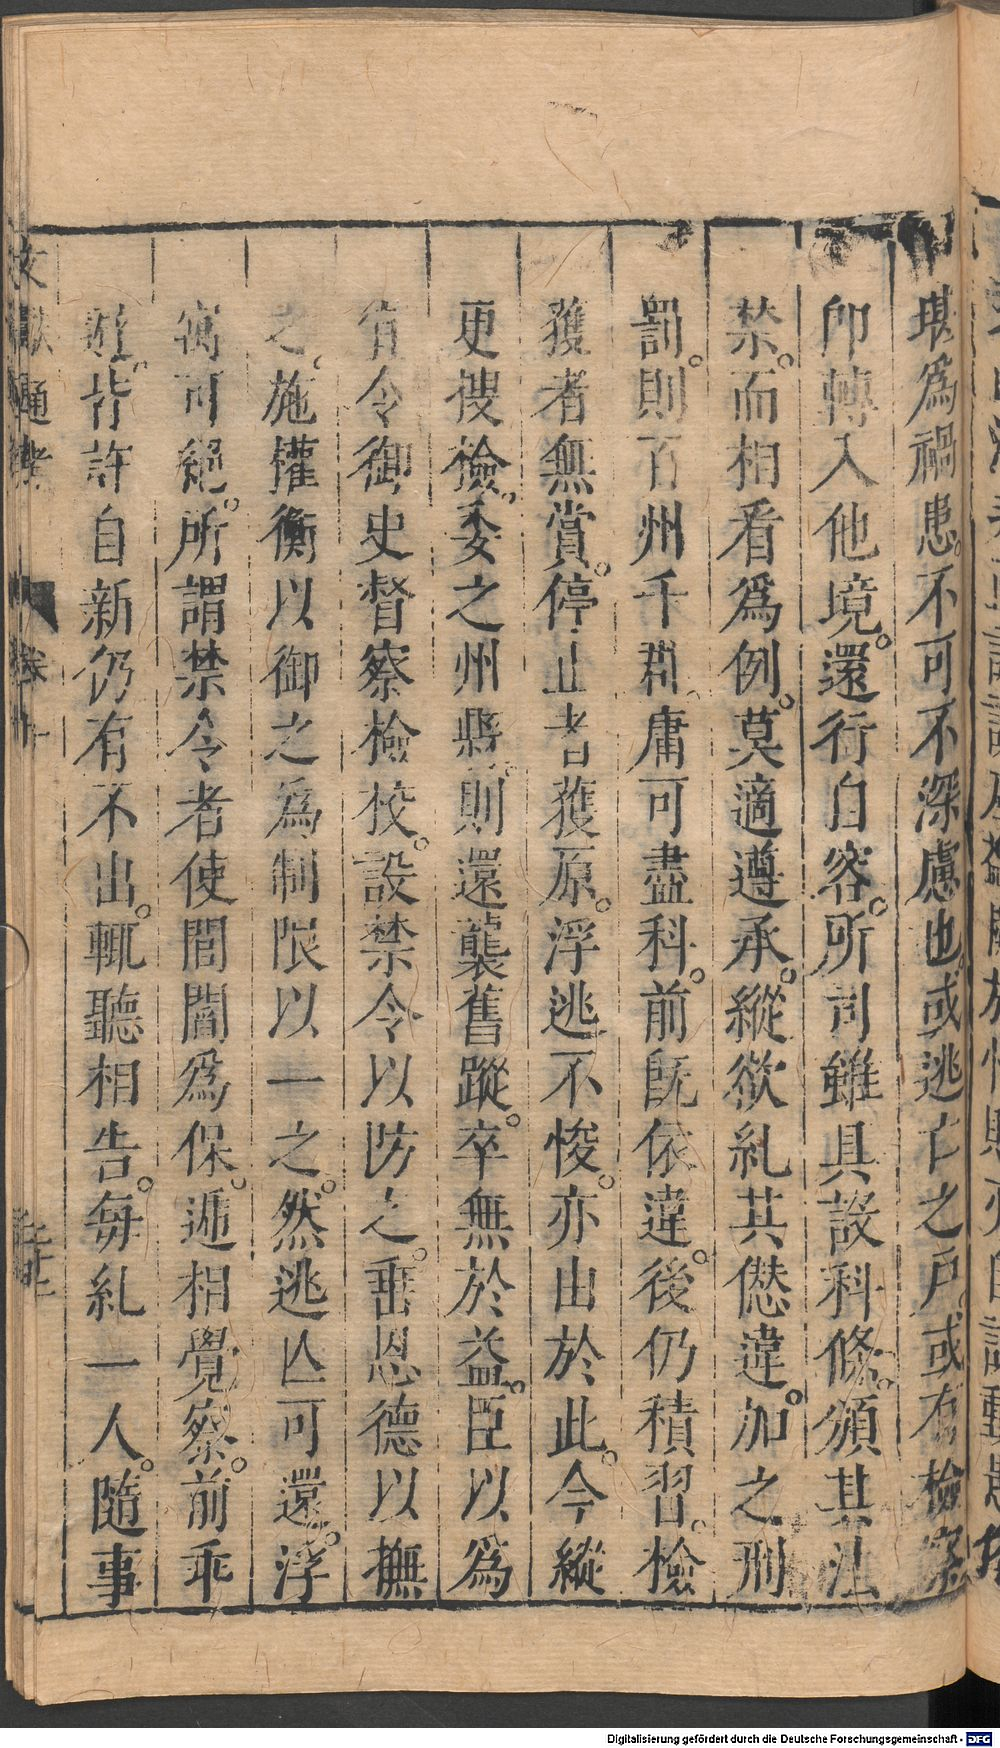 堪爲禍患。不可不深慮也。或逃亡之戶。或有檢察
卽轉入他境。還行自容。所司雖具設科條。頒其法
禁。而相看爲例。莫適遵承。縱欲糺其愆違。加之刑
罰。則百州千郡。庸可盡科。前旣依違。後仍積習。檢
獲者無賞。停止者獲原。浮逃不悛。亦由於此。今縱
更搜檢。委之州縣。則還襲舊蹤。卒無於益。臣以爲
宜令御史督察檢校。設禁令以防之。垂恩德以撫
之。施權衡以御之爲制限以一之。然逃亾可還。浮
寓可絕。所謂禁令者使閭閻爲保。遞相覺察。前乖
避。皆許自新仍有不出。輒聽相告。每糺一人。隨事
文獻通考 卷十
Digitalisierung gefördert durch die Deutsche Forschungsgemeinschaft - DFG